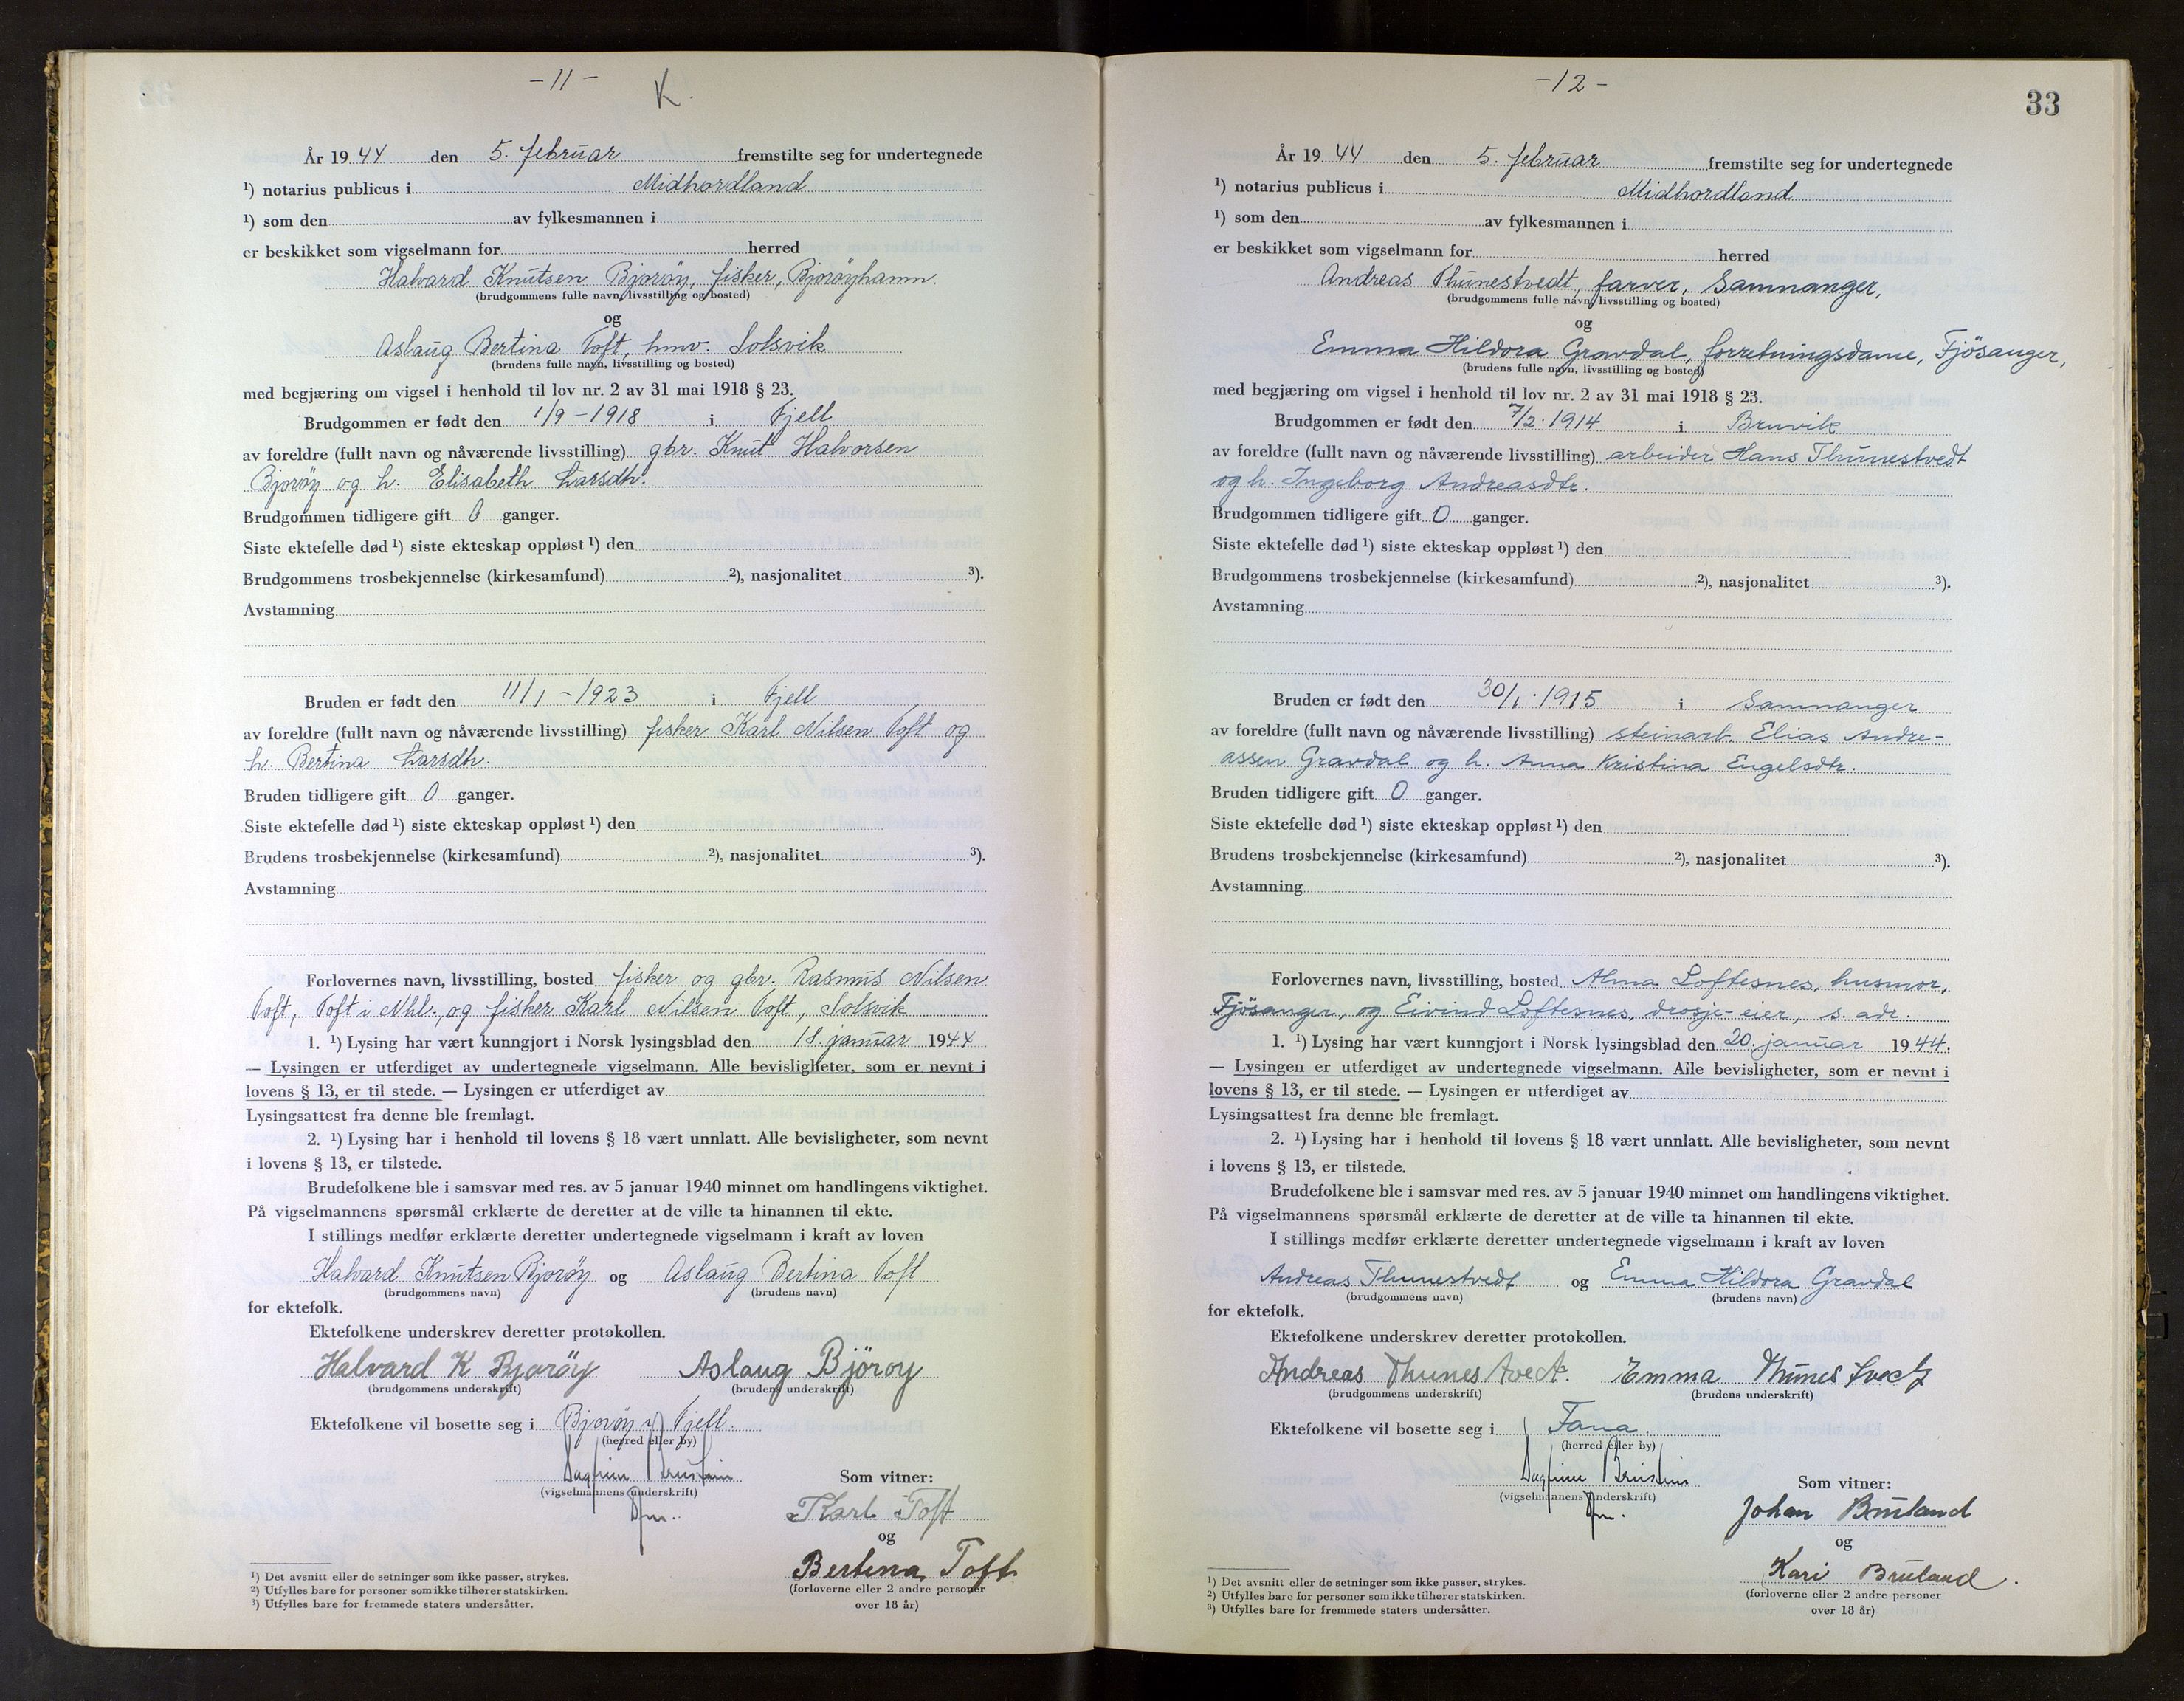 - 11 -
K.
År 1944 den 5. februar fremstilte seg for undertegnede
¹) notarius publicus i Midhordland
¹) som den av fylkesmannen i
er beskikket som vigselmann for herred
Halvard Knutsen Bjorøy, fisker, Bjorøyhamn.
(brudgommens fulle navn, livsstilling og bosted)
og
Aslaug Bertina Toft, hmv. Solsvik
(brudens fulle navn, livsstilling og bosted)
med begjæring om vigsel i henhold til lov nr. 2 av 31 mai 1918 § 23.
Brudgommen er født den 1/9 - 1918 i Fjell
av foreldre (fullt navn og nåværende livsstilling) gbr. Knut Halvorsen
Bjorøy og h. Elisabeth Larsdtr.
Brudgommen tidligere gift 0 ganger.
Siste ektefelle død ¹) siste ekteskap oppløst ¹) den
Brudgommens trosbekjennelse (kirkesamfund) ²), nasjonalitet ³).
Avstamning
Bruden er født den 11/1 - 1923 i Fjell
av foreldre (fullt navn og nåværende livsstilling) fisker Karl Nilsen Toft og
h. Bertina Larsdtr.
Bruden tidligere gift 0 ganger.
Siste ektefelle død ¹) siste ekteskap oppløst ¹) den
Brudens trosbekjennelse (kirkesamfund) ²), nasjonalitet ³).
Avstamning
Forlovernes navn, livsstilling, bosted fisker og gbr. Rasmus Nilsen
Toft, Toft i Nhl., og fisker Karl Nilsen Toft, Solsvik
1. ¹) Lysing har vært kunngjort i Norsk lysingsblad den 18. januar 1944
— Lysingen er utferdiget av undertegnede vigselmann. Alle bevisligheter, som er nevnt i
lovens § 13, er til stede. — Lysingen er utferdiget av
Lysingsattest fra denne ble fremlagt.
2. ¹) Lysing har i henhold til lovens § 18 vært unnlatt. Alle bevisligheter, som nevnt
i lovens § 13, er tilstede.
Brudefolkene ble i samsvar med res. av 5 januar 1940 minnet om handlingens viktighet.
På vigselmannens spørsmål erklærte de deretter at de ville ta hinannen til ekte.
I stillings medfør erklærte deretter undertegnede vigselmann i kraft av loven
Halvard Knutsen Bjorøy og Aslaug Bertina Toft
(brudgommens navn) (brudens navn)
for ektefolk.
Ektefolkene underskrev deretter protokollen.
Halvard K Bjorøy Aslaug Björoy
(brudgommens underskrift) (brudens underskrift)
Ektefolkene vil bosette seg i Bjorøy i Fjell.
(herred eller by)
(vigselmannens underskrift)
Som vitner:
Karl Toft
og
Bertina Toft
(forloverne eller 2 andre personer
over 18 år)
¹) Det avsnitt eller de setninger som ikke passer, strykes.
²) Utfylles bare for personer som ikke tilhører statskirken.
³) Utfylles bare for fremmede staters undersåtter.
- 12 -
33
År 1944 den 5. februar fremstilte seg for undertegnede
¹) notarius publicus i Midhordland
¹) som den av fylkesmannen i
er beskikket som vigselmann for herred
Andreas Thunestvedt, farver, Samnanger,
(brudgommens fulle navn, livsstilling og bosted)
og
Emma Hildora Gravdal, forretningsdame, Fjösanger,
(brudens fulle navn, livsstilling og bosted)
med begjæring om vigsel i henhold til lov nr. 2 av 31 mai 1918 § 23.
Brudgommen er født den 7/2. 1914 i Bruvik
av foreldre (fullt navn og nåværende livsstilling) arbeider Hans Thunestvedt
og h. Ingeborg Andreasdtr.
Brudgommen tidligere gift 0 ganger.
Siste ektefelle død ¹) siste ekteskap oppløst ¹) den
Brudgommens trosbekjennelse (kirkesamfund) ²), nasjonalitet ³).
Avstamning
Bruden er født den 30/1. 1915 i Samnanger
av foreldre (fullt navn og nåværende livsstilling) steinarb. Elias Andre-
assen Gravdal og h. Anna Kristina Engelsdtr.
Bruden tidligere gift 0 ganger.
Siste ektefelle død ¹) siste ekteskap oppløst ¹) den
Brudens trosbekjennelse (kirkesamfund) ²), nasjonalitet ³).
Avstamning
Forlovernes navn, livsstilling, bosted Alma Loftesnes, husmor,
Fjösanger, og Eivind Loftesnes, drosje-eier, s. adr.
1. ¹) Lysing har vært kunngjort i Norsk lysingsblad den 20. januar 1944.
— Lysingen er utferdiget av undertegnede vigselmann. Alle bevisligheter, som er nevnt i
lovens § 13, er til stede. — Lysingen er utferdiget av
Lysingsattest fra denne ble fremlagt.
2. ¹) Lysing har i henhold til lovens § 18 vært unnlatt. Alle bevisligheter, som nevnt
i lovens § 13, er tilstede.
Brudefolkene ble i samsvar med res. av 5 januar 1940 minnet om handlingens viktighet.
På vigselmannens spørsmål erklærte de deretter at de ville ta hinannen til ekte.
I stillings medfør erklærte deretter undertegnede vigselmann i kraft av loven
Andreas Thunestvedt og Emma Hildora Gravdal
(brudgommens navn) (brudens navn)
for ektefolk.
Ektefolkene underskrev deretter protokollen.
Andreas Thunestvedt. Emma Thunestvedt
(brudgommens underskrift) (brudens underskrift)
Ektefolkene vil bosette seg i Fana.
(herred eller by)
(vigselmannens underskrift)
Som vitner:
Johan Bruland
og
Kari Bruland.
(forloverne eller 2 andre personer
over 18 år)
¹) Det avsnitt eller de setninger som ikke passer, strykes.
²) Utfylles bare for personer som ikke tilhører statskirken.
³) Utfylles bare for fremmede staters undersåtter.